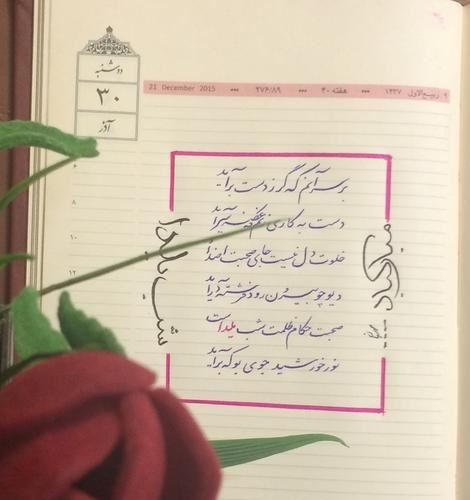 دوشنبه
۳۰
آذر
21 December 2015 ••• ۲۷۶/۸۹ ••• هفته ۴۰ ••• ۹ ربیع‌الاول ۱۴۳۷
بر سر آنم که گر ز دست برآید
دست به کاری زنم که غصه سرآید
خلوت دل نیست جای صحبت اضداد
دیو چو بیرون رود فرشته درآید
صحبت حکام ظلمت شب یلداست
نور خورشید جوی بو که برآید
شب یلدا
مبارکباد
۸
۱۰
۱۲